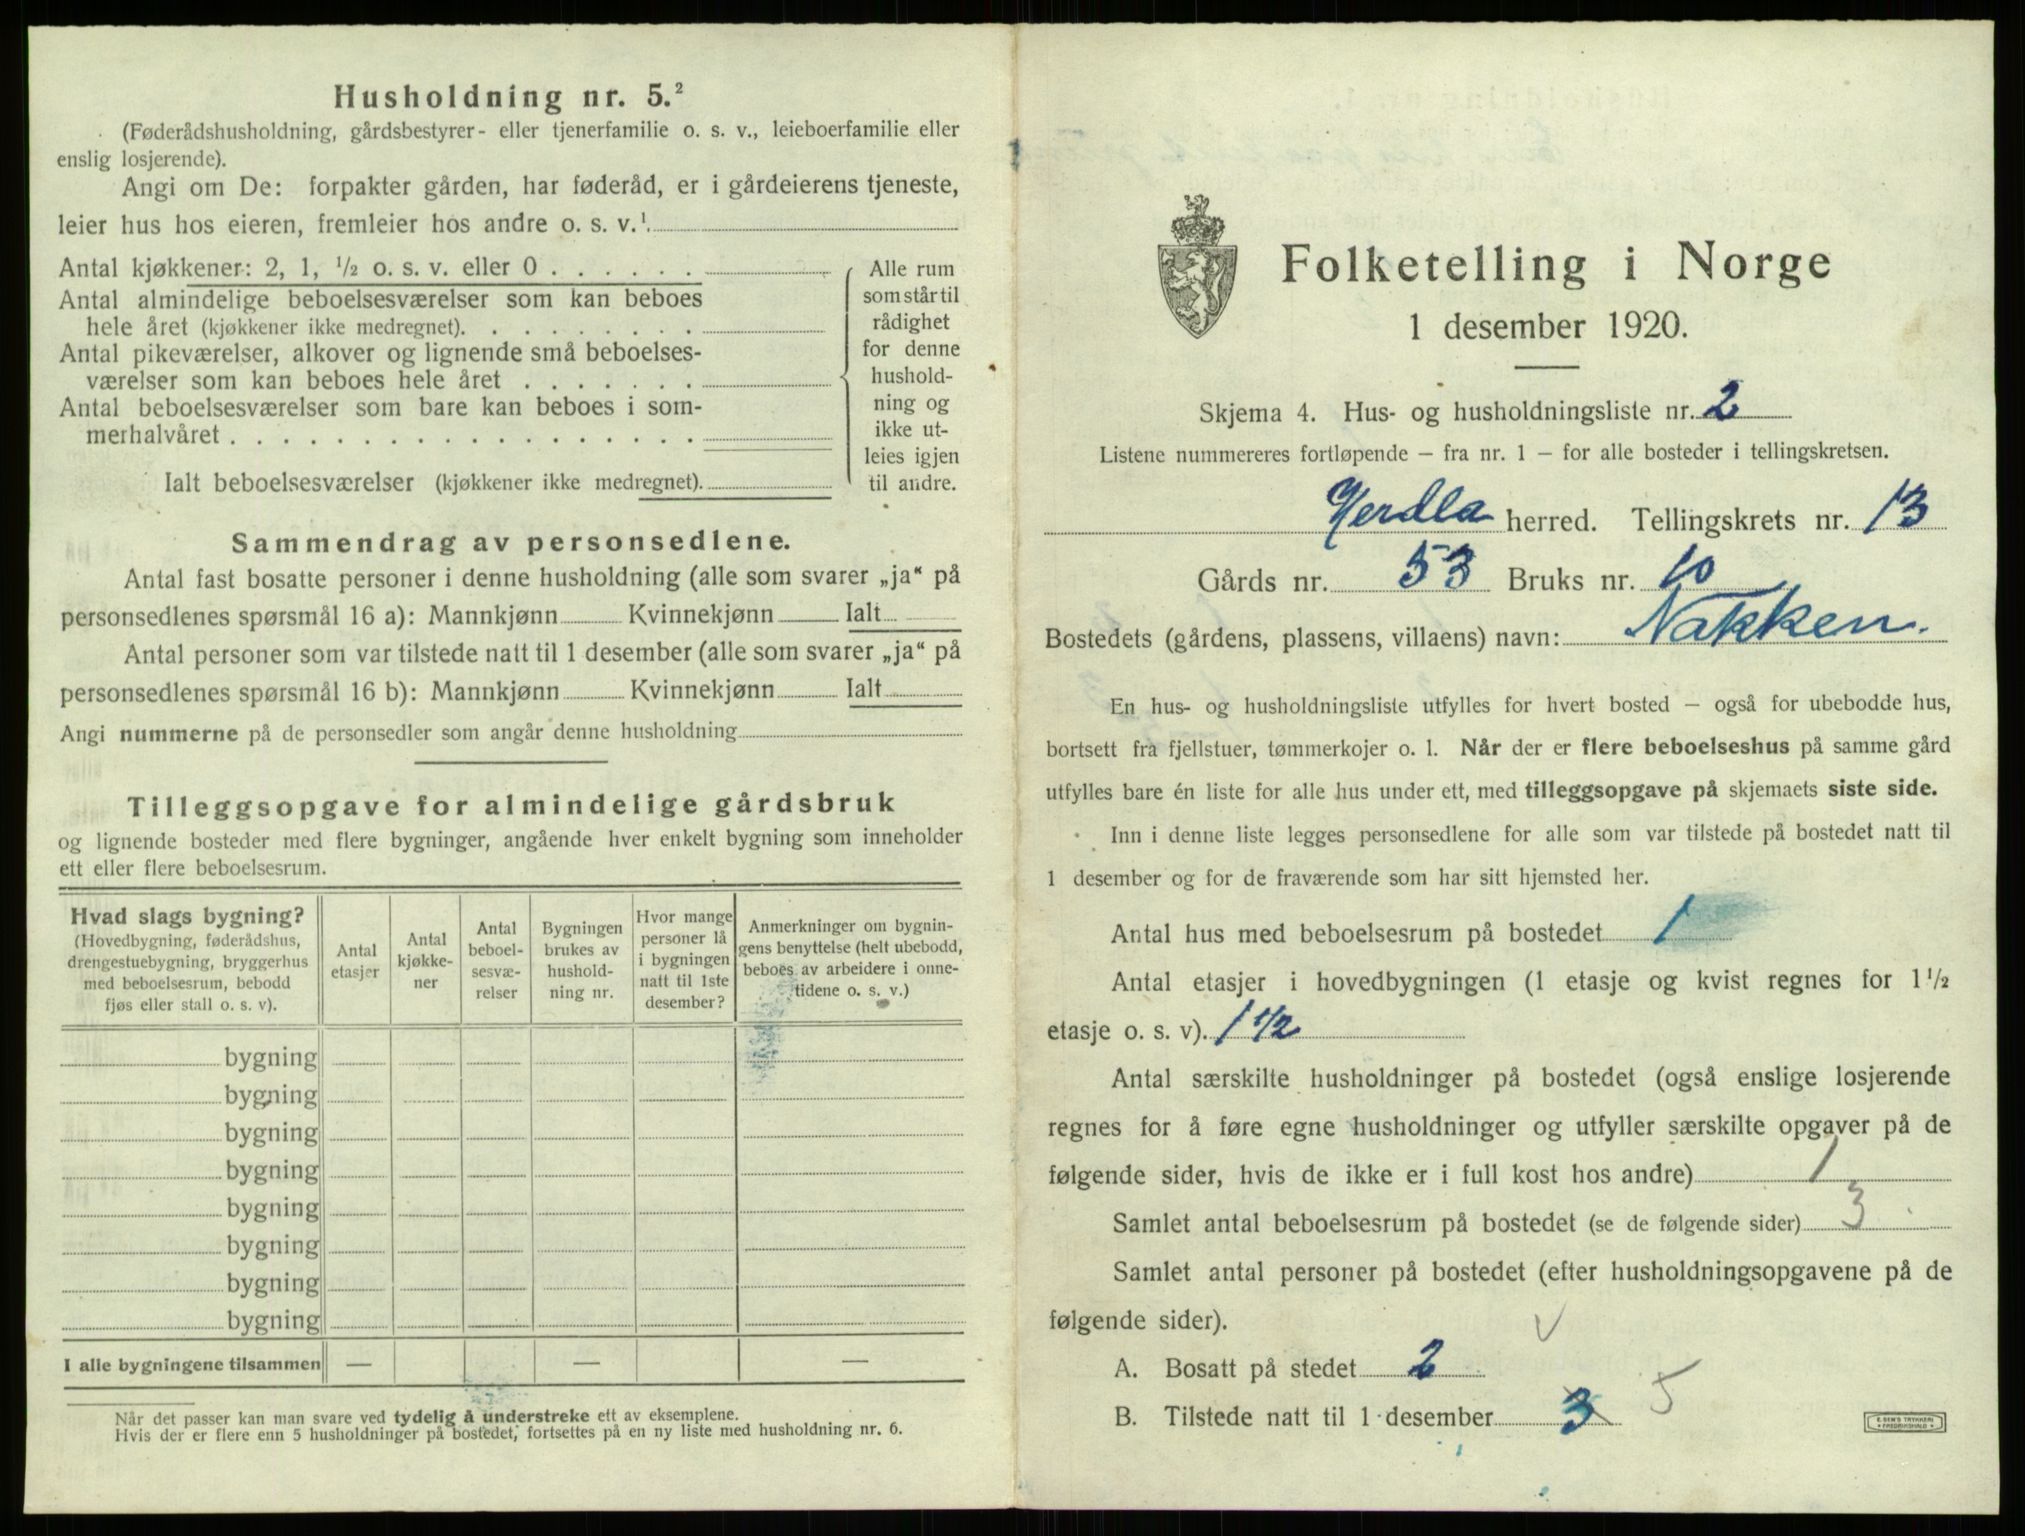 Husholdning nr. 5.²
(Føderådshusholdning, gårdsbestyrer- eller tjenerfamilie o. s. v., leieboerfamilie eller
enslig losjerende).
Angi om De: forpakter gården, har føderåd, er i gårdeierens tjeneste,
leier hus hos eieren, fremleier hos andre o. s. v.¹
Antal kjøkkener: 2, 1, ½ o. s. v. eller 0 . . . . . .
Antal almindelige beboelsesværelser som kan beboes
hele året (kjøkkener ikke medregnet). . . . . . . . .
Antal pikeværelser, alkover og lignende små beboelses-
værelser som kan beboes hele året . . . . . . .
Antal beboelsesværelser som bare kan beboes i som-
merhalvåret . . . . . . . . . . . . . . . . . .
Ialt beboelsesværelser (kjøkkener ikke medregnet).
Alle rum
som står til
rådighet
for denne
hushold-
ning og
ikke ut-
leies igjen
til andre.
Sammendrag av personsedlene.
Antal fast bosatte personer i denne husholdning (alle som svarer „ja“ på
personsedlenes spørsmål 16 a): Mannkjønn Kvinnekjønn Ialt
Antal personer som var tilstede natt til 1 desember (alle som svarer „ja“ på
personsedlenes spørsmål 16 b): Mannkjønn Kvinnekjønn Ialt
Angi nummerne på de personsedler som angår denne husholdning
Tilleggsopgave for almindelige gårdsbruk
og lignende bosteder med flere bygninger, angående hver enkelt bygning som inneholder
ett eller flere beboelsesrum.
Hvad slags bygning?
(Hovedbygning, føderådshus,
drengestuebygning, bryggerhus
med beboelsesrum, bebodd
fjøs eller stall o. s. v).
Antal
etasjer
Antal
kjøkke-
ner
Antal
beboel-
sesvæ-
relser
Bygningen
brukes av
hushold-
ning nr.
Hvor mange
personer lå
i bygningen
natt til 1ste
desember?
Anmerkninger om bygnin-
gens benyttelse (helt ubebodd,
beboes av arbeidere i onne-
tidene o. s. v.)
bygning
bygning
bygning
bygning
bygning
bygning
bygning
bygning
I alle bygningene tilsammen — — —
Når det passer kan man svare ved tydelig å understreke ett av eksemplene.
Hvis der er flere enn 5 husholdninger på bostedet, fortsettes på en ny liste med husholdning nr. 6.
Folketelling i Norge
1 desember 1920.
Skjema 4. Hus- og husholdningsliste nr. 2
Listene nummereres fortløpende – fra nr. 1 – for alle bosteder i tellingskretsen.
Herdla herred. Tellingskrets nr. 13
Gårds nr. 53 Bruks nr. 10
Bostedets (gårdens, plassens, villaens) navn: Nakken.
En hus- og husholdningsliste utfylles for hvert bosted – også for ubebodde hus,
bortsett fra fjellstuer, tømmerkojer o. l. Når der er flere beboelseshus på samme gård
utfylles bare én liste for alle hus under ett, med tilleggsopgave på skjemaets siste side.
Inn i denne liste legges personsedlene for alle som var tilstede på bostedet natt til
1 desember og for de fraværende som har sitt hjemsted her.
Antal hus med beboelsesrum på bostedet 1
Antal etasjer i hovedbygningen (1 etasje og kvist regnes for 1½
etasje o. s. v). 1 1/2
Antal særskilte husholdninger på bostedet (også enslige losjerende
regnes for å føre egne husholdninger og utfyller særskilte opgaver på de
følgende sider, hvis de ikke er i full kost hos andre) 1
Samlet antal beboelsesrum på bostedet (se de følgende sider) 3
Samlet antal personer på bostedet (efter husholdningsopgavene på de
følgende sider).
A. Bosatt på stedet 2
B. Tilstede natt til 1 desember 3 5
E. SEM'S TRYKKERI
FREDRIKSHALD